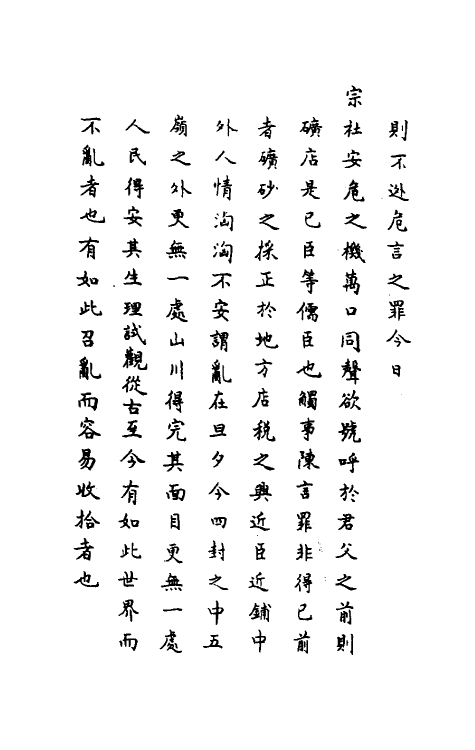 則不遜危言之罪今日
宗社安危之機萬口同聲欲號呼於君父之前則
礦店是已臣等儒臣也觸事陳言罪非得已前
者礦砂之採正於地方店税之興近臣近鋪中
外人情洶洶不安謂亂在旦夕今四封之中五
嶺之外更無一處山川得完其面目更無一處
人民得安其生理試觀從古至今有如此世界而
不亂者也有如此召亂而容易收拾者也